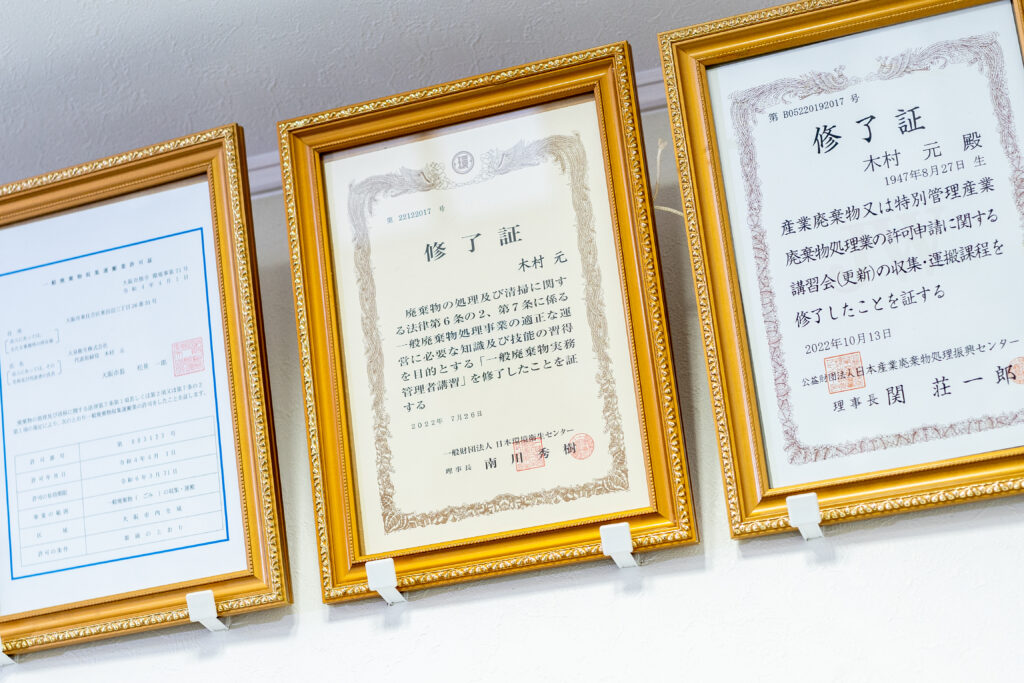 一般廃棄物収集運搬業許可証
大阪市長
許可番号
第 003123 号
許可年月日
令和4年4月1日
許可の有効期限
令和6年3月31日
事業の範囲
一般廃棄物(ごみ)の収集・運搬
区域
大阪市内全域
許可の条件
裏面のとおり
環
第 22122017 号
修了証
木村 元
廃棄物の処理及び清掃に関す
る法律第6条の2、第7条に係る
一般廃棄物処理事業の適正な運
営に必要な知識及び技能の習得
を目的とする「一般廃棄物実務
管理者講習」を修了したことを証
する
2022年 7月26日
一般財団法人 日本環境衛生センター
理事長 南川秀樹
第 B05220192017 号
修了証
木村 元 殿
1947年8月27日 生
産業廃棄物又は特別管理産業
廃棄物処理業の許可申請に関する
講習会(更新)の収集・運搬課程を
修了したことを証する
2022年10月13日
公益財団法人日本産業廃棄物処理振興センター
理事長 関 荘一郎